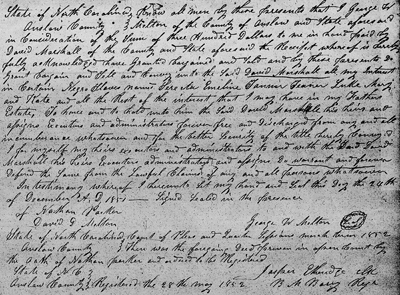 State of North Carolina, Know all men by these presents that I George W
Onslow County } Melton of the County of Onslow and State aforesaid
in consideration of the Sum of three Hundred Dollars to me in hand paid by
David Marshall of the County and State aforesaid the Receipt whereof is hereby
fully acknowledged have Granted bargained and Sold and by these presents do
Grant bargain and Sell and Convey unto the Said David Marshall all my Interest
in Certain Negro Slaves names Emeline Fanner Mary
and Nate and all the Rest of the interest that I may have in my Fathers
Estate, To have and to hold unto him the Said David Marshall his heirs and
assigns Executors and administrators forever free and Discharged from any and all
incumbrances whatsoever and for the better Security of the title hereby Conveyed
I for myself my heirs executors and administrators to and with the Said David
Marshall his heirs Executors administrators and assigns do warrant and forever
Defend the Same from the Lawful Claims of any and all persons whatsoever
In testimony whereof I hereunto Set my hand and Seal this Day the 26th
of December A.D. 1851 — Signed Sealed in the presence
of Nathan Parker
David J Melton George W Melton
State of North Carolina, Court of Pleas and Quarter Sessions march term 1852
Onslow County } then was the foregoing Deed proven in open Court by
the oath of Nathan Parker and ordered to be Registered
State of N C } Jasper Etheridge clk
Onslow County } Registered the 28th may 1852 Regr